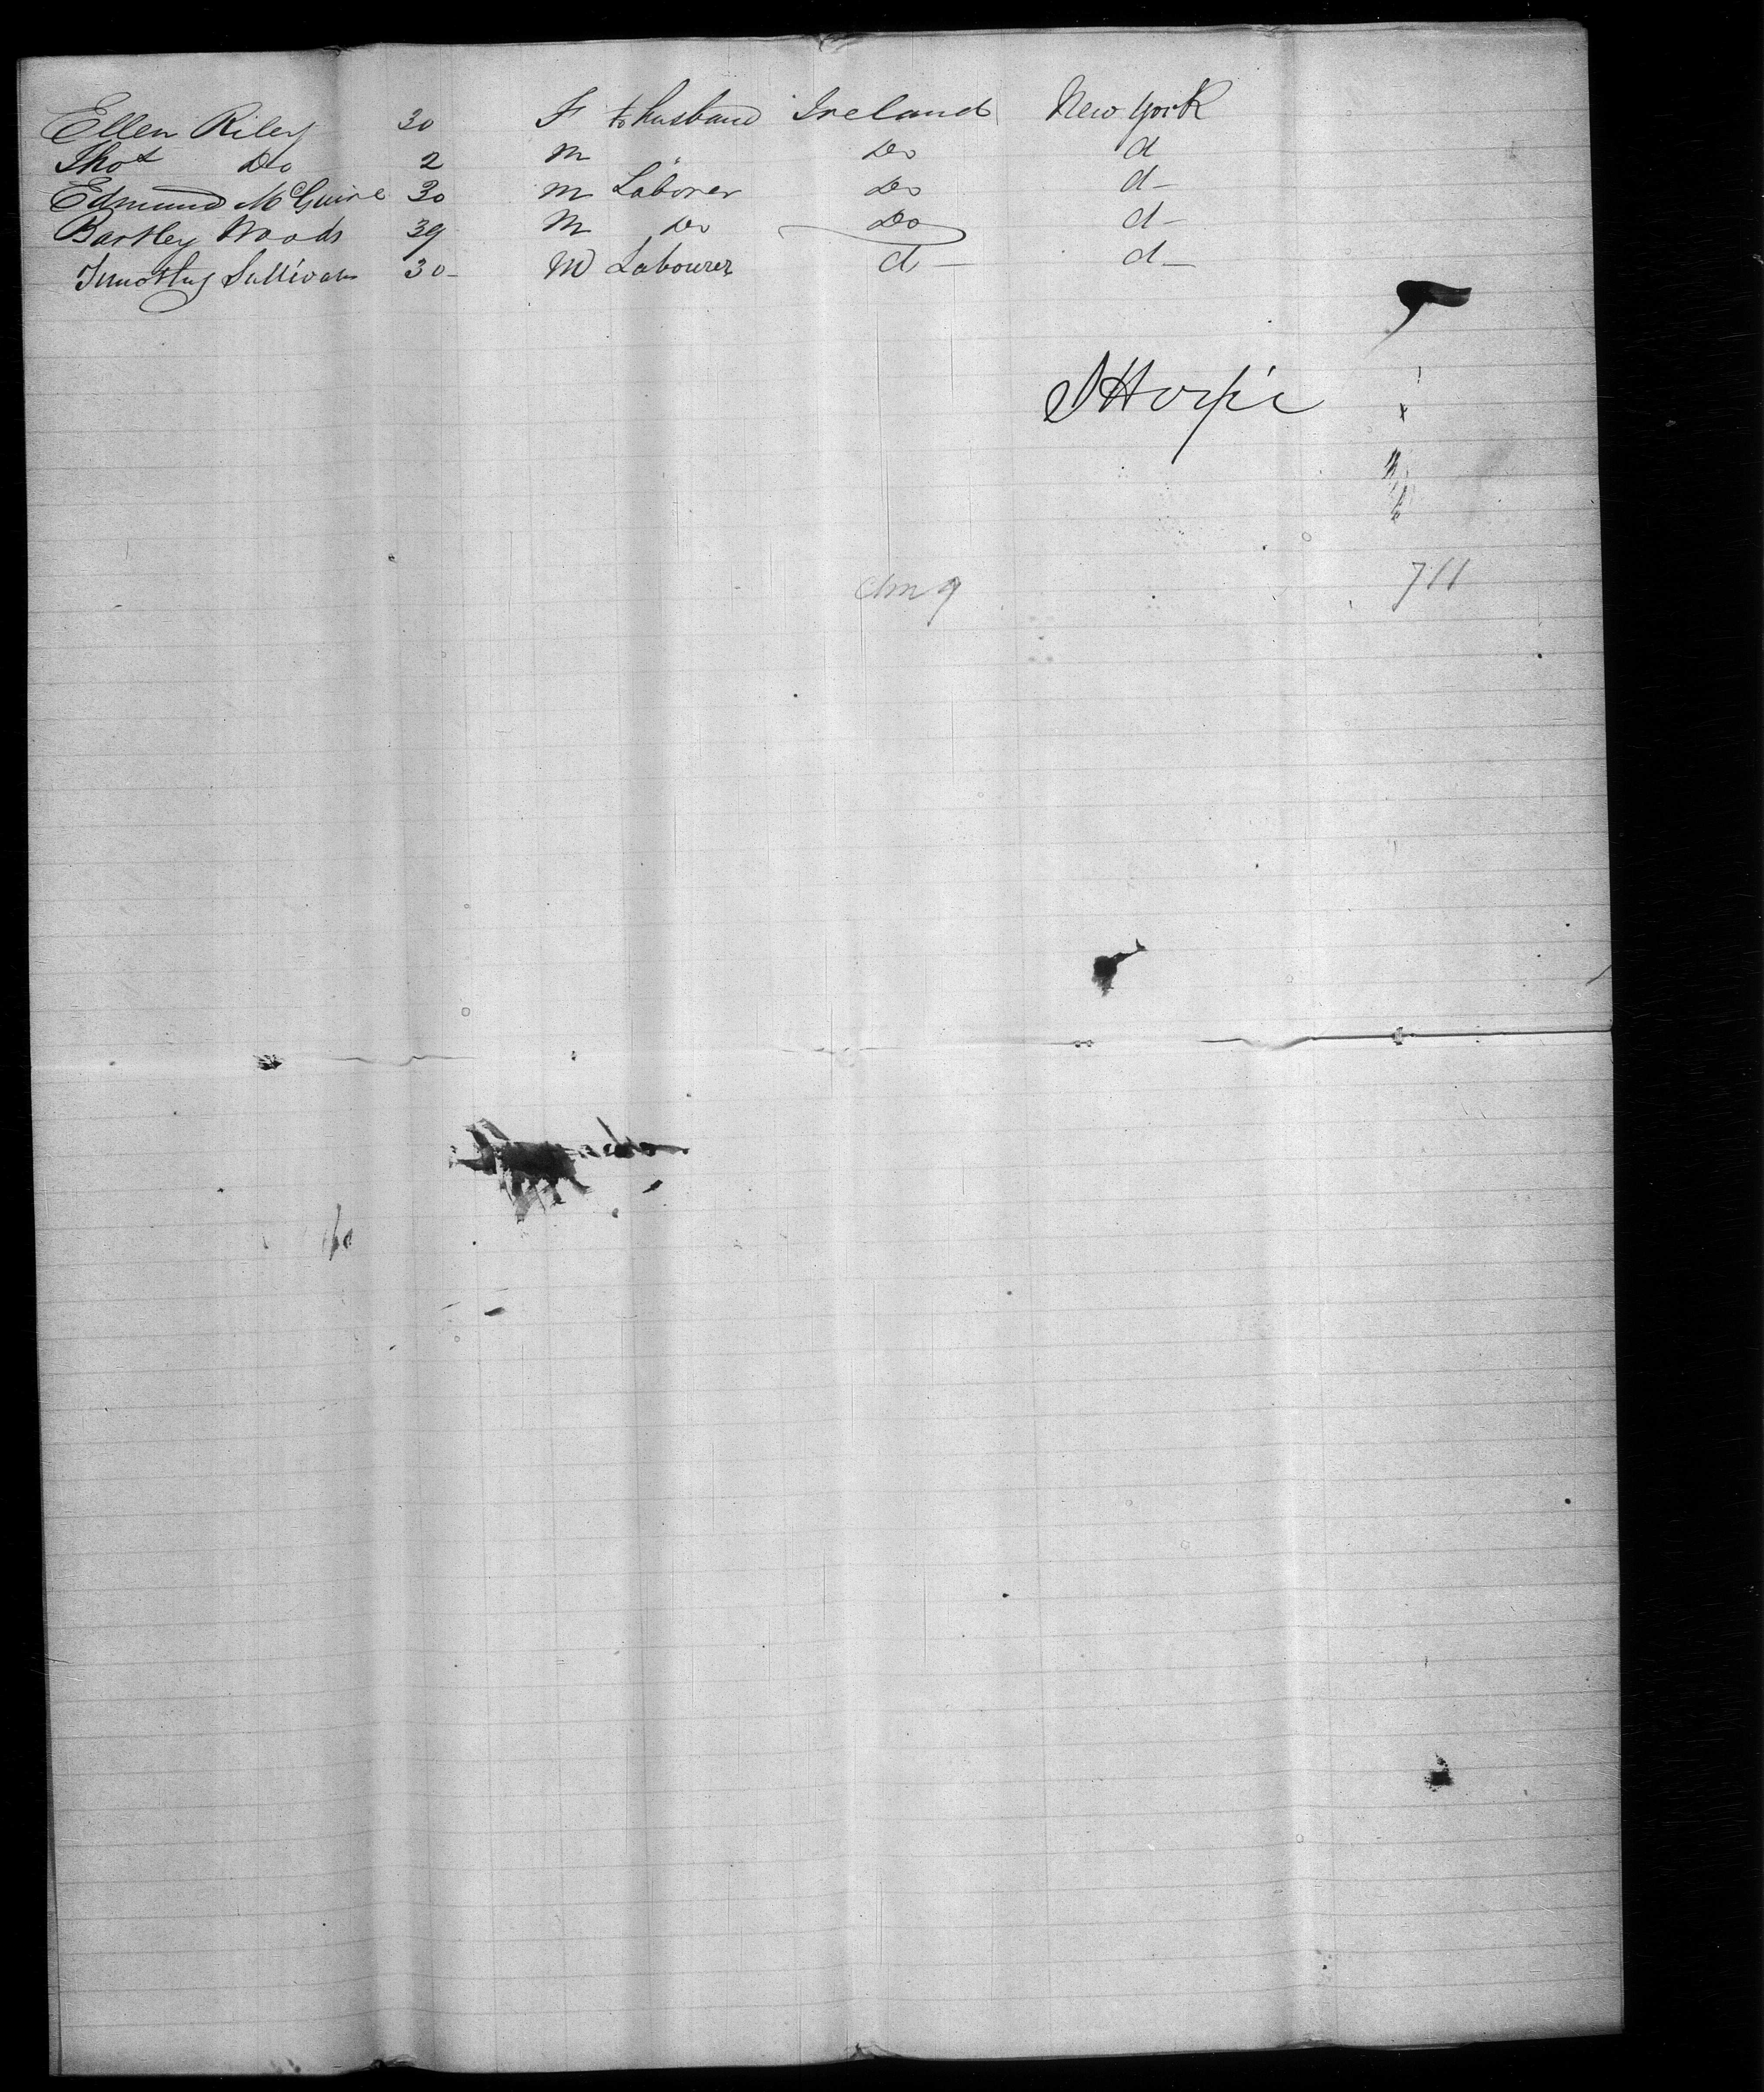 Ellen Riley 30 F to husband Ireland New York
Thos Do 2 M " Do d
Edmund McGuire 30 M Laborer Do d-
Bartley Woods 39 M Do Do d-
Timothy Sullivan 30- M Labourer d- d-
711